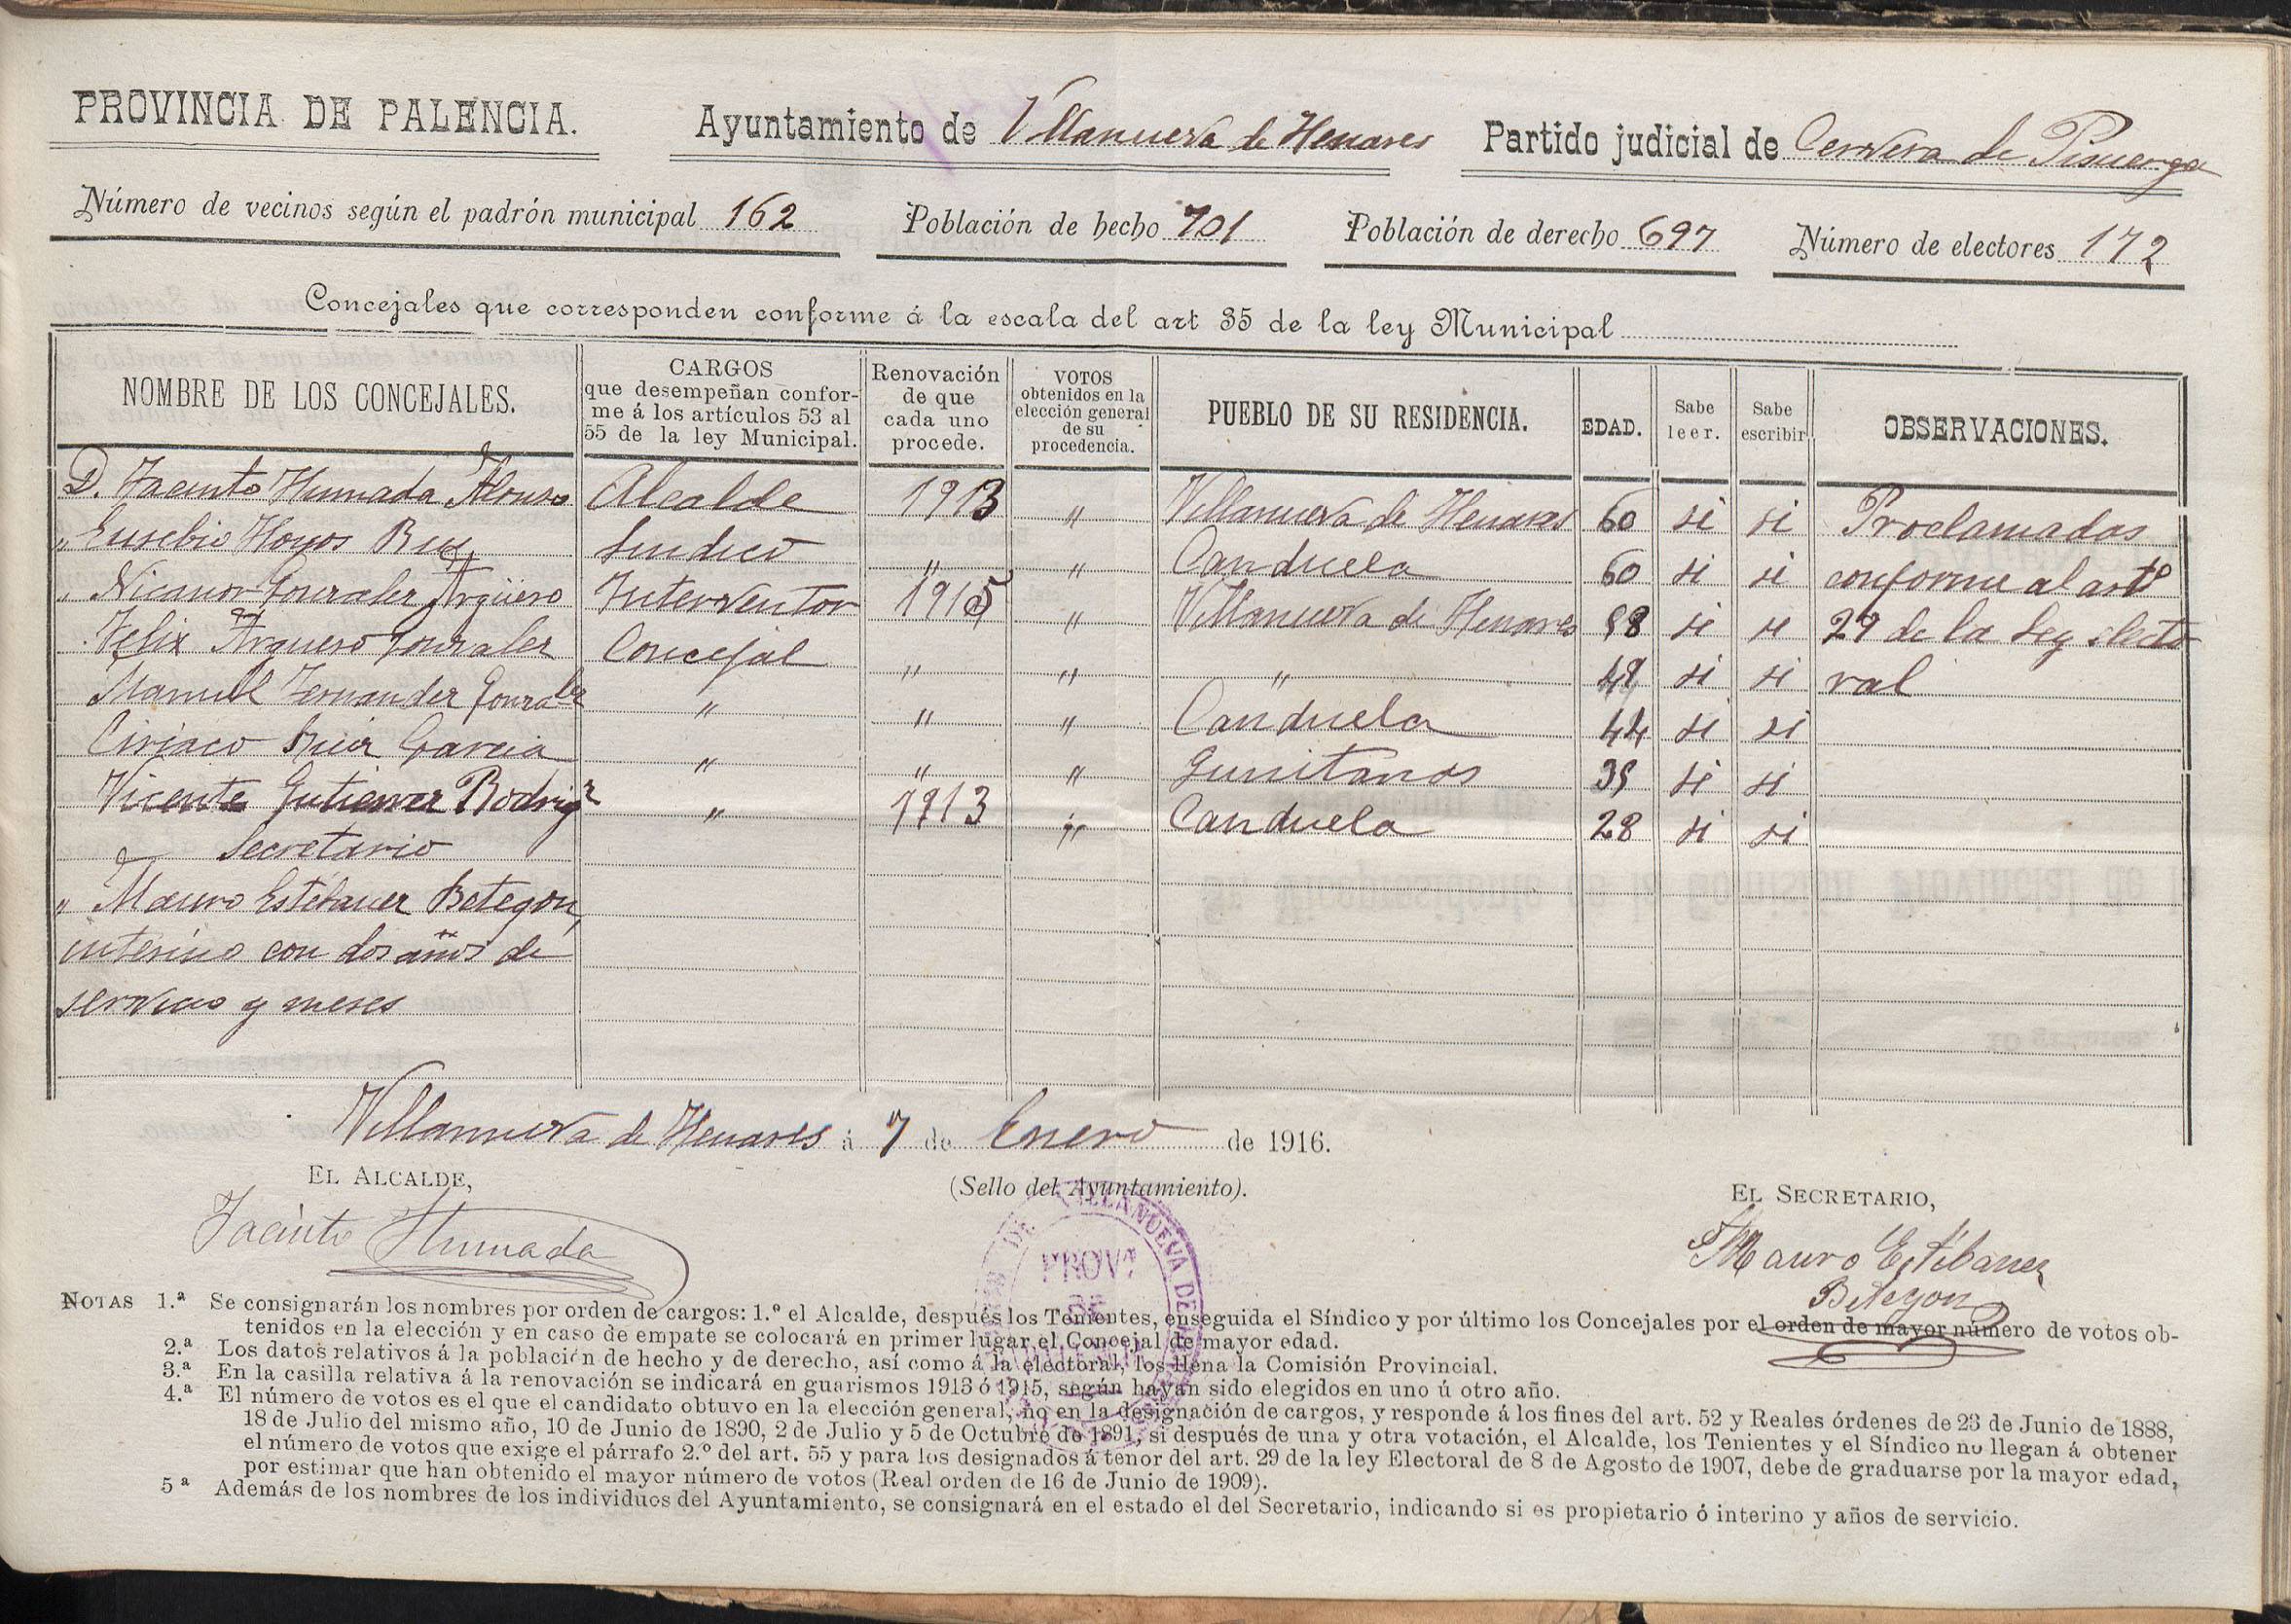 PROVINCIA DE PALENCIA. Ayuntamiento de Villanueva de Henares Partido judicial de Cervera de Pisuerga
Número de vecinos según el padrón municipal 162 Población de hecho 701 Población de derecho 697 Número de electores 172
Concejales que corresponden conforme á la escala del art 35 de la ley Municipal
NOMBRE DE LOS CONCEJALES. CARGOS que desempeñan confor- me á los artículos 53 al 55 de la ley Municipal. Renovación de que cada uno procede. VOTOS obtenidos en la elección general de su procedencia. PUEBLO DE SU RESIDENCIA. EDAD. Sabe leer. Sabe escribir OBSERVACIONES.
D. Jacinto Humada Alonso Alcalde 1913 " Villanueva de Henares 60 si si Proclamados
" Eusebio Hoyos Ruiz Sindico " " Canduela 60 si si conforme al artº
" Nicanor Gonzalez Argüeso Interventor 1915 " Villanueva de Henares 58 si si 29 de la Ley electo
Felix Argueso Gonzalez Concejal " " " 49 si si ral
Manuel Fernandez Gonzalez " " " Canduela 44 si si
Ciriaco Ruiz Garcia " " " Quintanas 35 si si
Vicente Gutierrez Rodrigz " 1913 " Canduela 28 si si
Secretario
" Mauro Estébanez Betegon,
interino con dos años de
servicio y meses
Villanueva de Henares á 7 de Enero de 1916.
EL ALCALDE, (Sello del Ayuntamiento). EL SECRETARIO,
Jacinto Humada
Mauro Estébanez
Betegon
DE VILLANUEVA DE
PROVª
DE
NOTAS 1.ª Se consignarán los nombres por orden de cargos: 1.º el Alcalde, después los Tenientes, enseguida el Síndico y por último los Concejales por el orden de mayor número de votos ob-
tenidos en la elección y en caso de empate se colocará en primer lugar el Concejal de mayor edad.
2.ª Los datos relativos á la población de hecho y de derecho, así como á la electoral, los llena la Comisión Provincial.
3.ª En la casilla relativa á la renovación se indicará en guarismos 1913 ó 1915, según hayan sido elegidos en uno ú otro año.
4.ª El número de votos es el que el candidato obtuvo en la elección general, no en la designación de cargos, y responde á los fines del art. 52 y Reales órdenes de 23 de Junio de 1888,
18 de Julio del mismo año, 10 de Junio de 1890, 2 de Julio y 5 de Octubre de 1891, si después de una y otra votación, el Alcalde, los Tenientes y el Síndico no llegan á obtener
el número de votos que exige el párrafo 2.º del art. 55 y para los designados á tenor del art. 29 de la ley Electoral de 8 de Agosto de 1907, debe de graduarse por la mayor edad,
por estimar que han obtenido el mayor número de votos (Real orden de 16 de Junio de 1909).
5ª Además de los nombres de los individuos del Ayuntamiento, se consignará en el estado el del Secretario, indicando si es propietario ó interino y años de servicio.